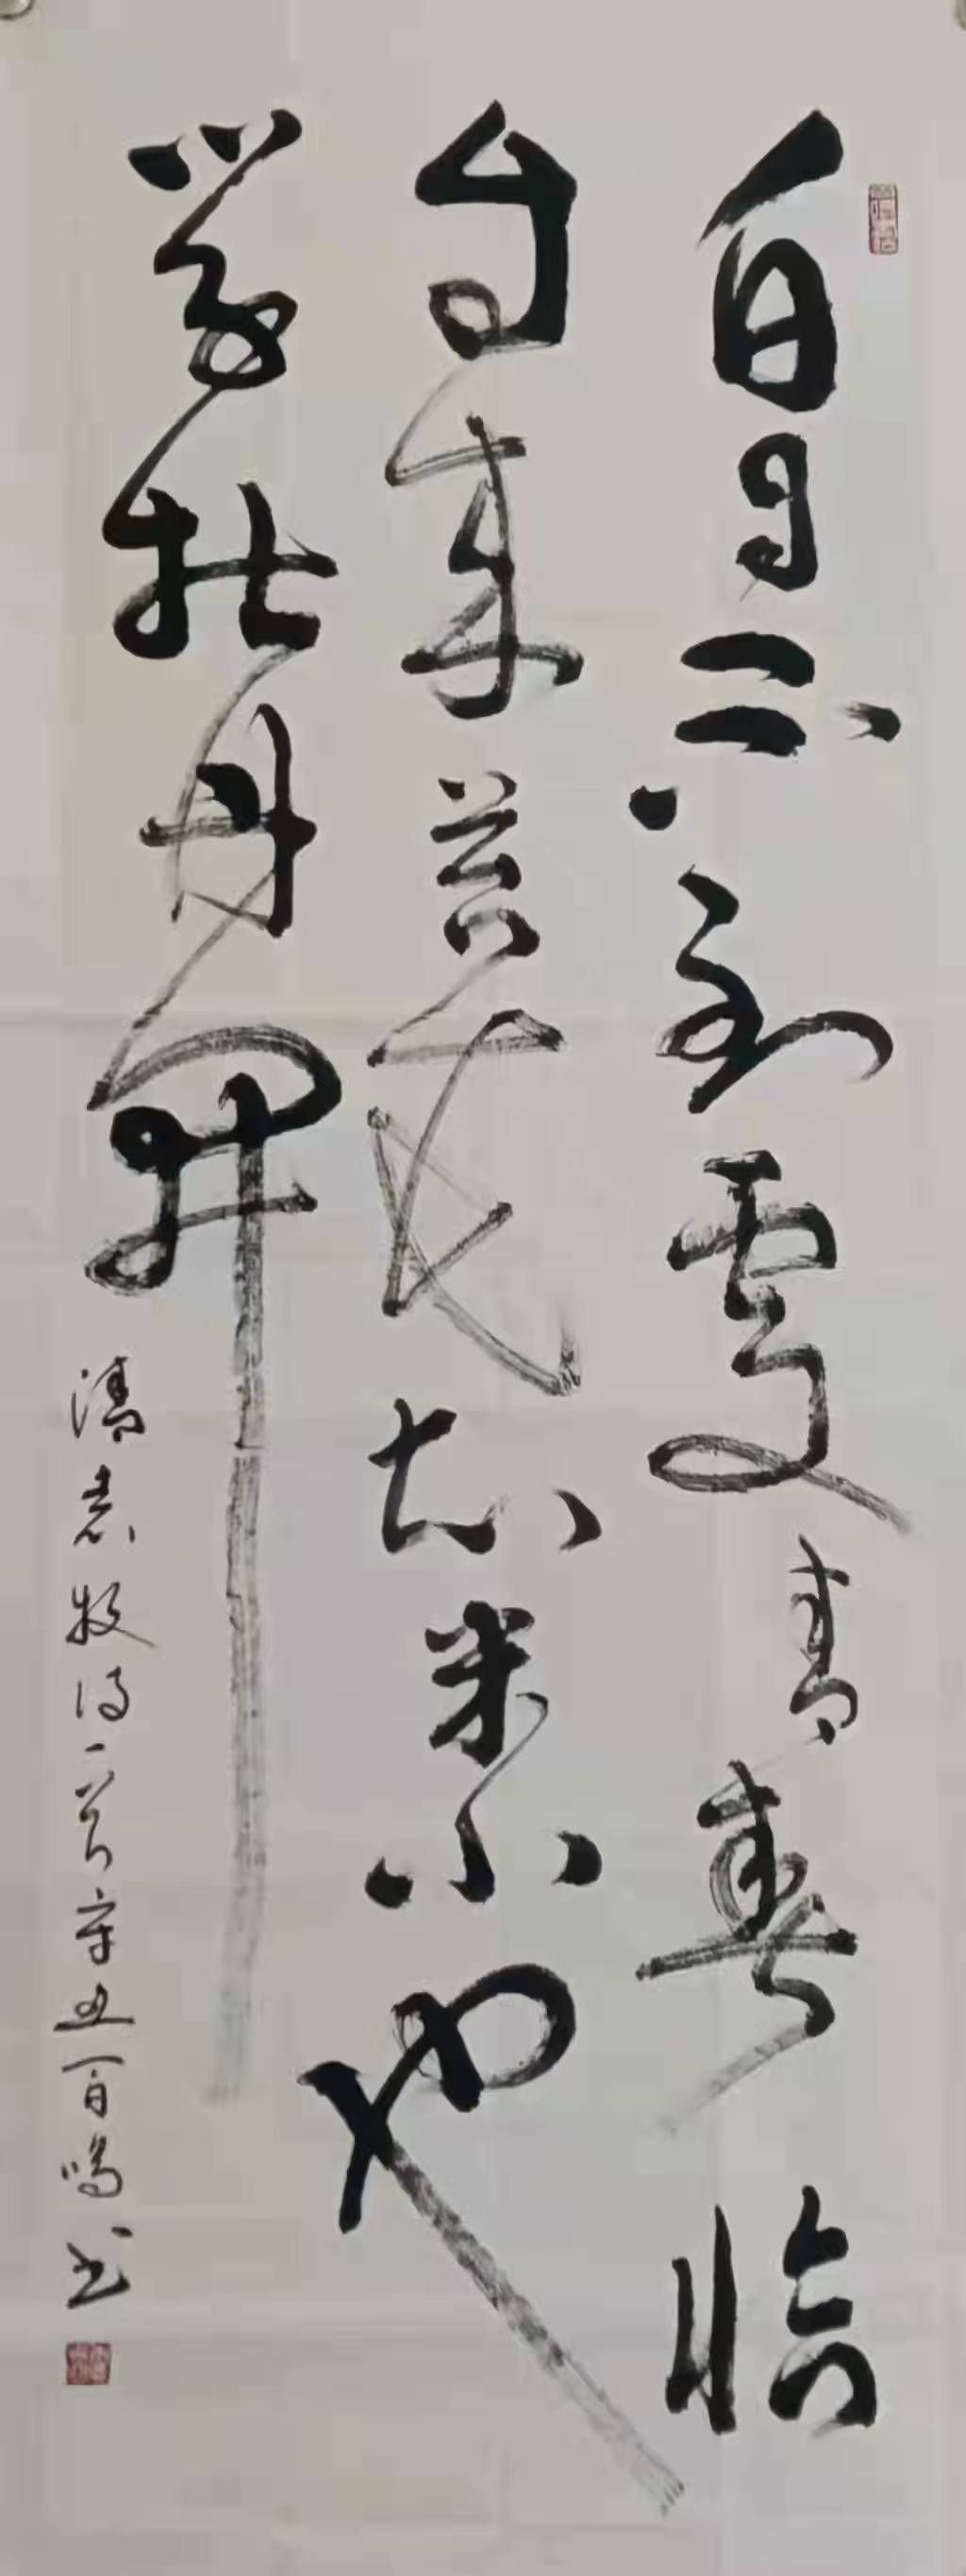 白日不到處青春恰
自来苔花如米小也
學牡丹開
清袁枚诗一首辛丑百鸣书